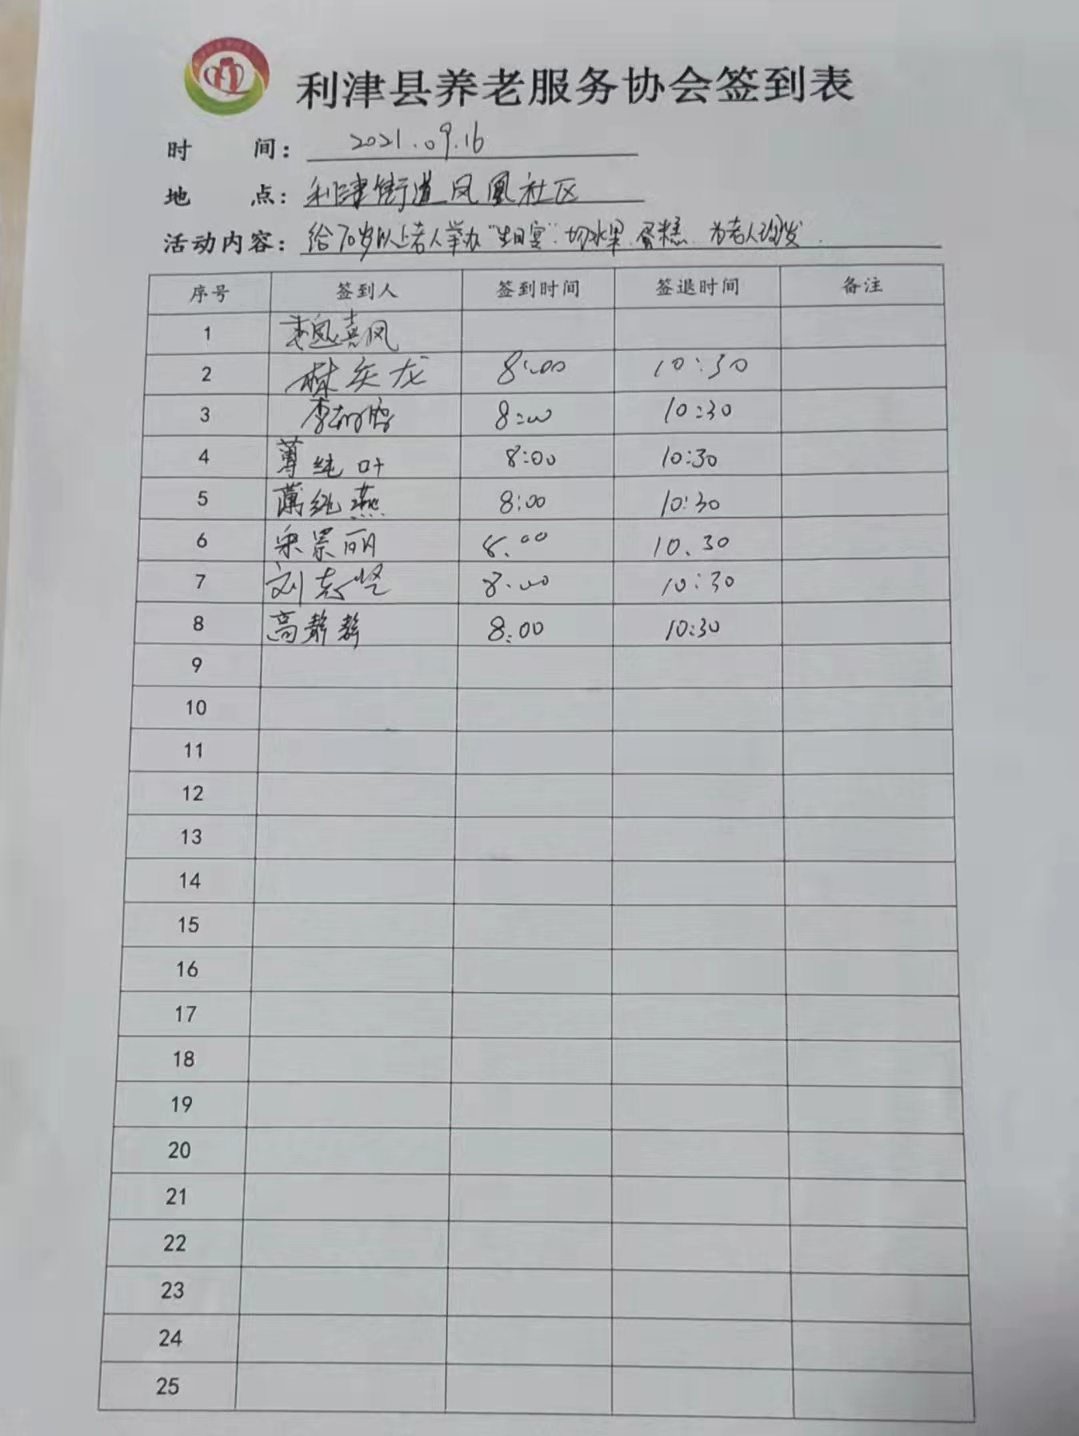 利津县养老服务协会签到表
时 间: 2021.09.16
地 点: 利津街道凤凰社区
活动内容: 给70岁以上老人举办"生日宴".切水果.蛋糕.为老人理发.
序号 签到人 签到时间 签退时间 备注
1 喜凤
2 林庆龙 8:00 10:30
3 李 8:00 10:30
4 薄纯叶 8:00 10:30
5 薄纯燕 8:00 10:30
6 宋景丽 8.00 10.30
7 刘志坚 8:00 10:30
8 高静静 8:00 10:30
9
10
11
12
13
14
15
16
17
18
19
20
21
22
23
24
25